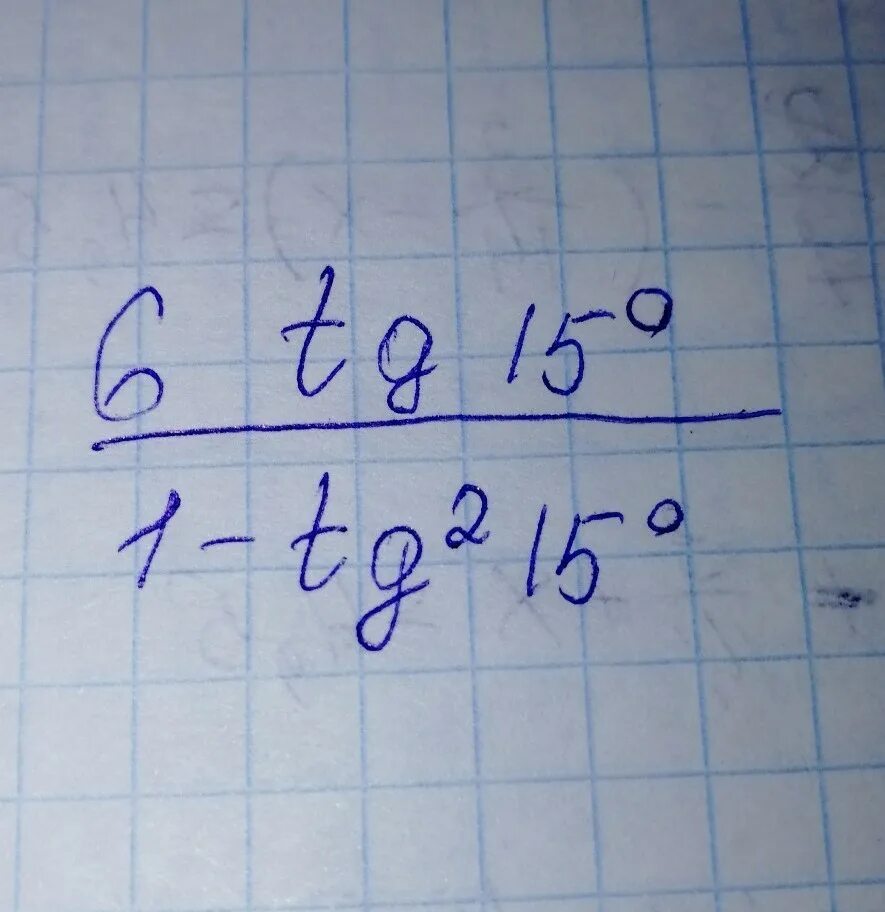 6 tg 15°
1 - tg² 15°